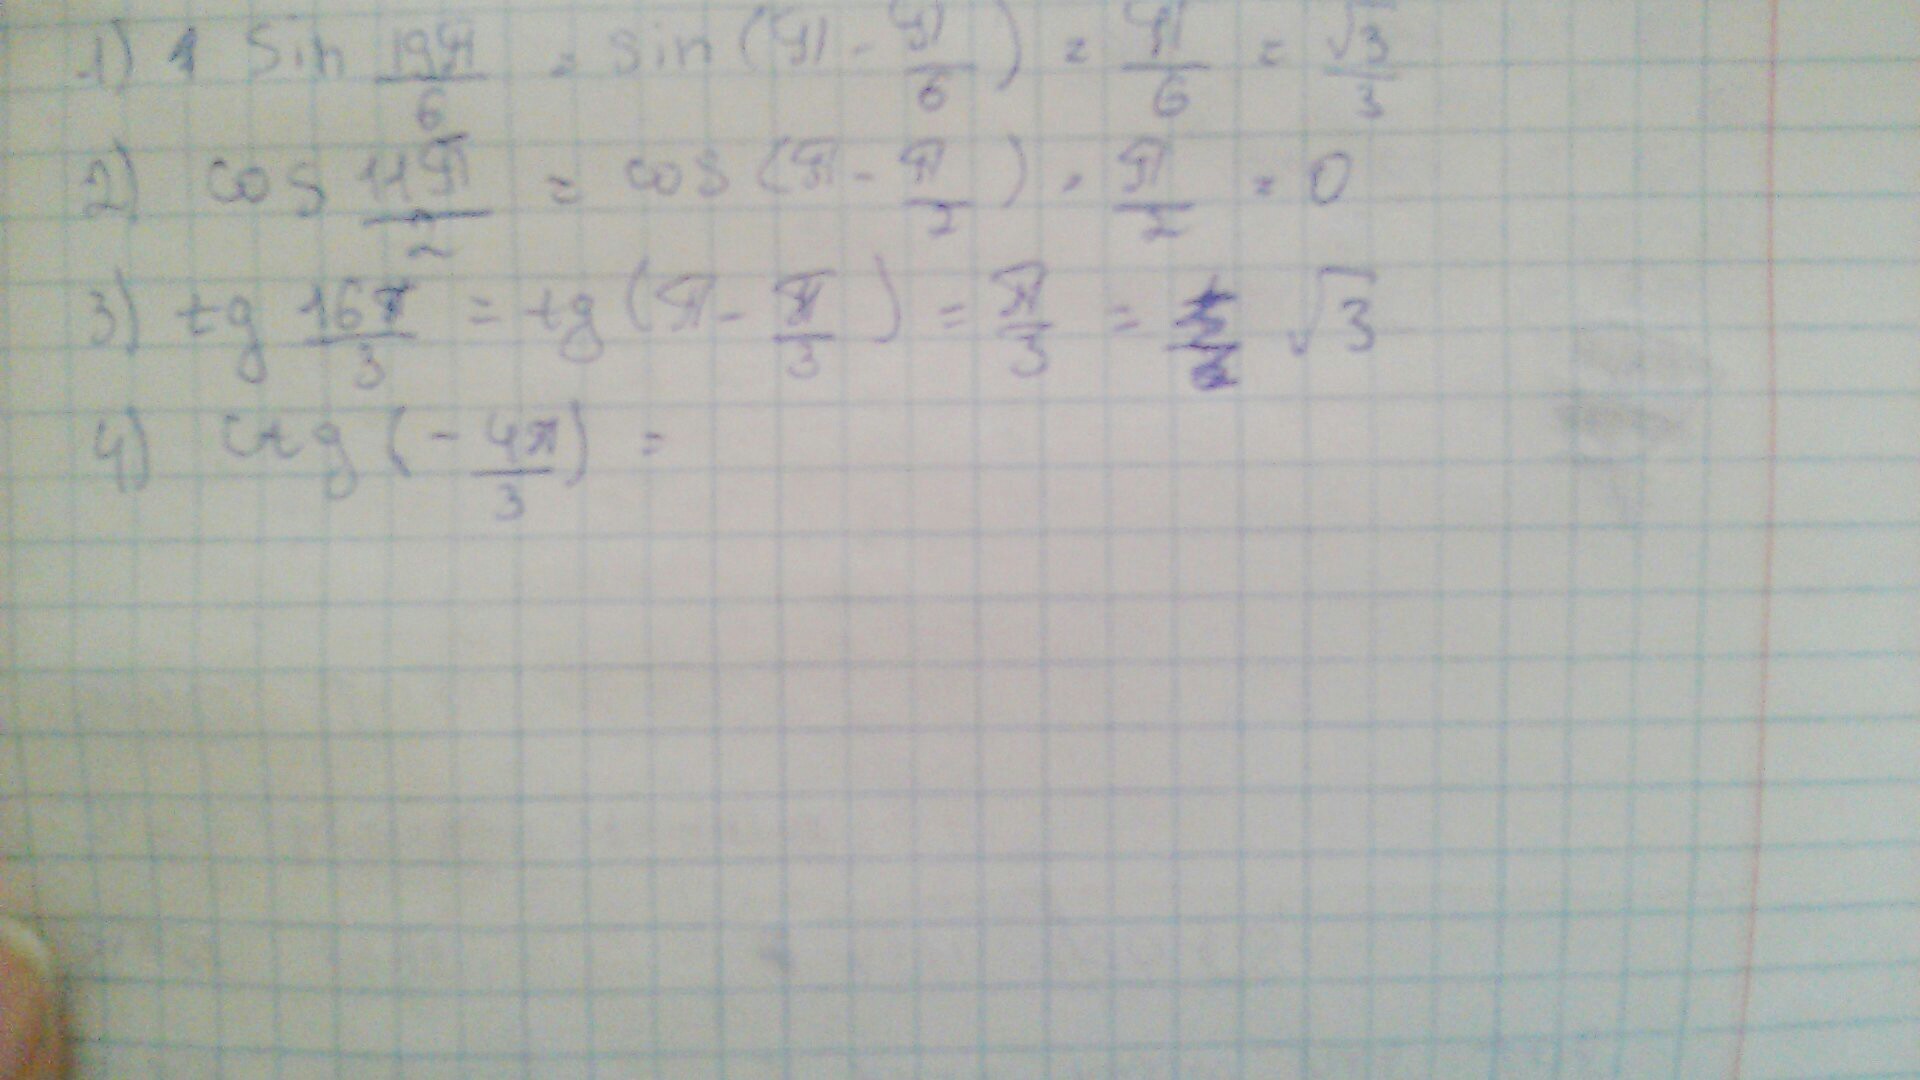 1) 1 sin 19π/6 = sin (π - π/6) = π/6 = √3/3
2) cos 11π/2 = cos (π - π/2) = π/2 = 0
3) tg 16π/3 = tg (π - π/3) = π/3 = √3
4) ctg (- 4π/3) =